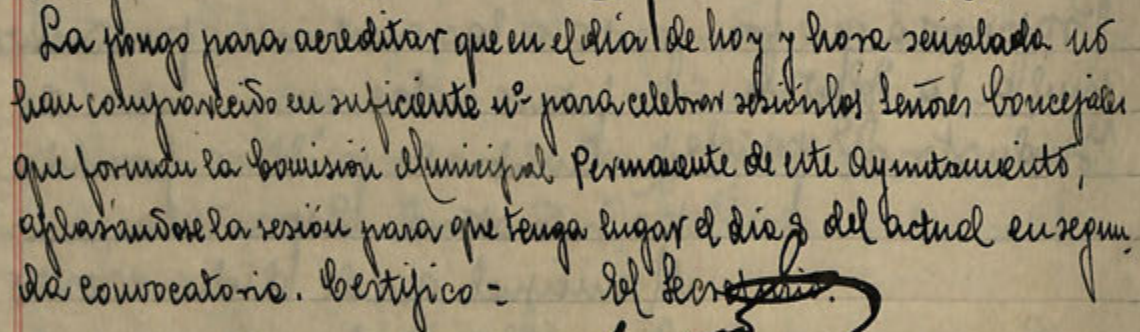 La pongo para acreditar que en el dia de hoy y hora señalada nó
han comparecido en suficiente nº para celebrar sesión los Señores Concejales
que forman la Comisión Municipal Permanente de este Ayuntamiento,
aplasándose la sesión para que tenga lugar el día 8 del actual en segun-
da convocatoria. Certifico =    El Secretario.